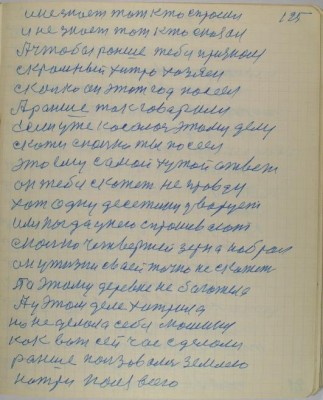 125
и не знает тот кто спросил
и не знает тот кто сказал
А чтобы раньше тебе признал
скромный хитро хозяен
сколко он этот год посеел
А раньше так говарили
Если уже косалос этому делу
скати сколко ты посеел
это ему самой хутой ответ
он тебе скажет не правду
хот одну десетину уворует
или когда унего спрашивают
сколко четвертей зерна набрал
он утжизни сваей точно не скажет
По этому деревне не багатела
А у этом деле хитрила
но не делала себе машину
как вот сей час сделали
раньше ползовалис землею
на три поля всего